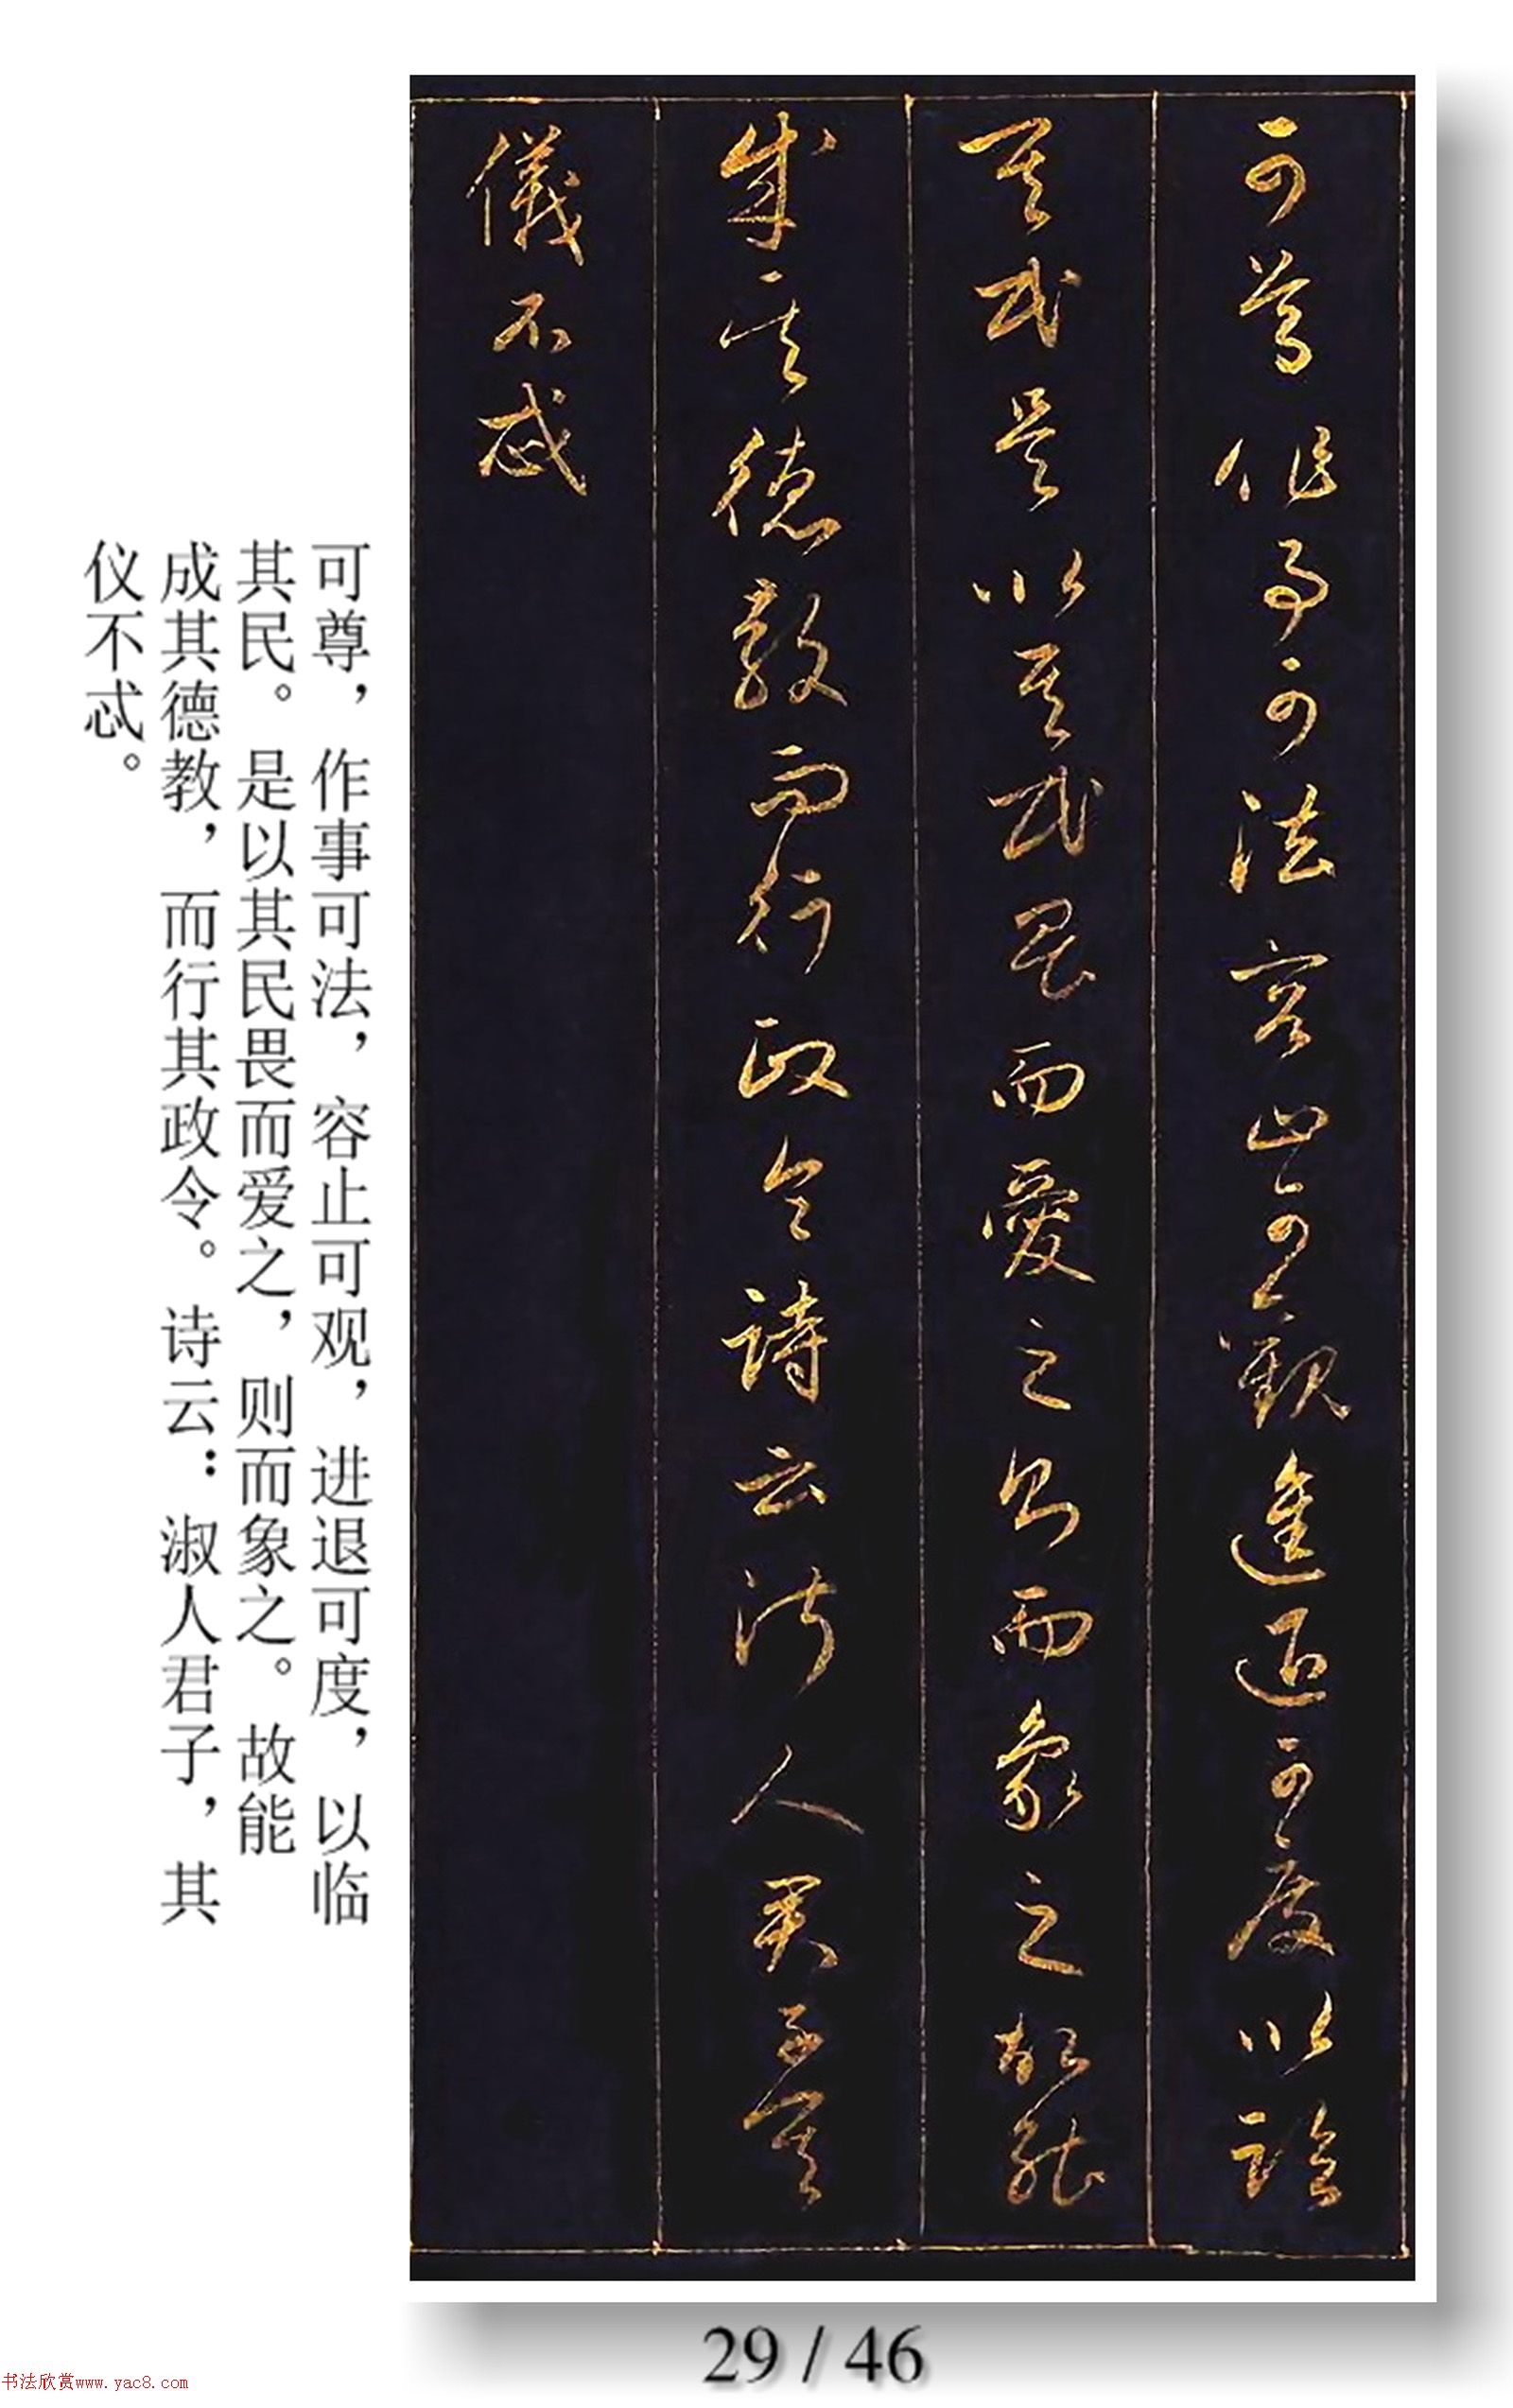 可尊作事可法容止可觀進退可度以臨
其民是以其民畏而愛之則而象之故能
成其德教而行政令詩云淑人君子其
儀不忒
可尊，作事可法，容止可观，进退可度，以临
其民。是以其民畏而爱之，则而象之。故能
成其德教，而行其政令。诗云：淑人君子，其
仪不忒。
29 / 46
书法欣赏www.yac8.com